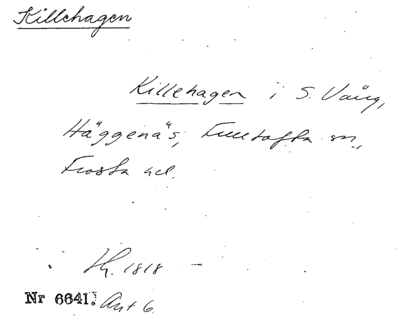 Killehagen
Killehagen i S. Vång,
Häggenäs, Fulltofta sn.,
Frosta hd.
1818 –
Nr 6641. Art 6.